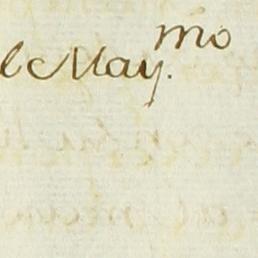 l May.mo